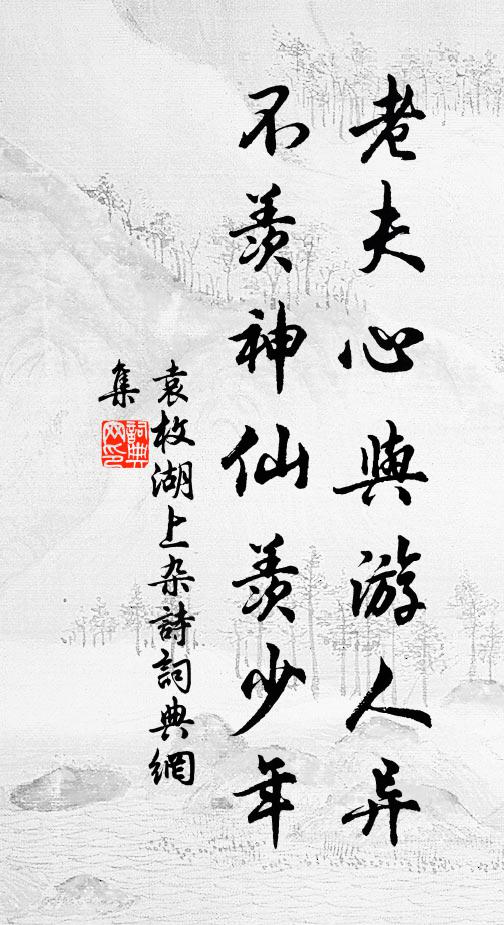 老夫心與游人异
不羡神仙羡少年
袁枚湖上杂詩詞典網
集
詞典
网印